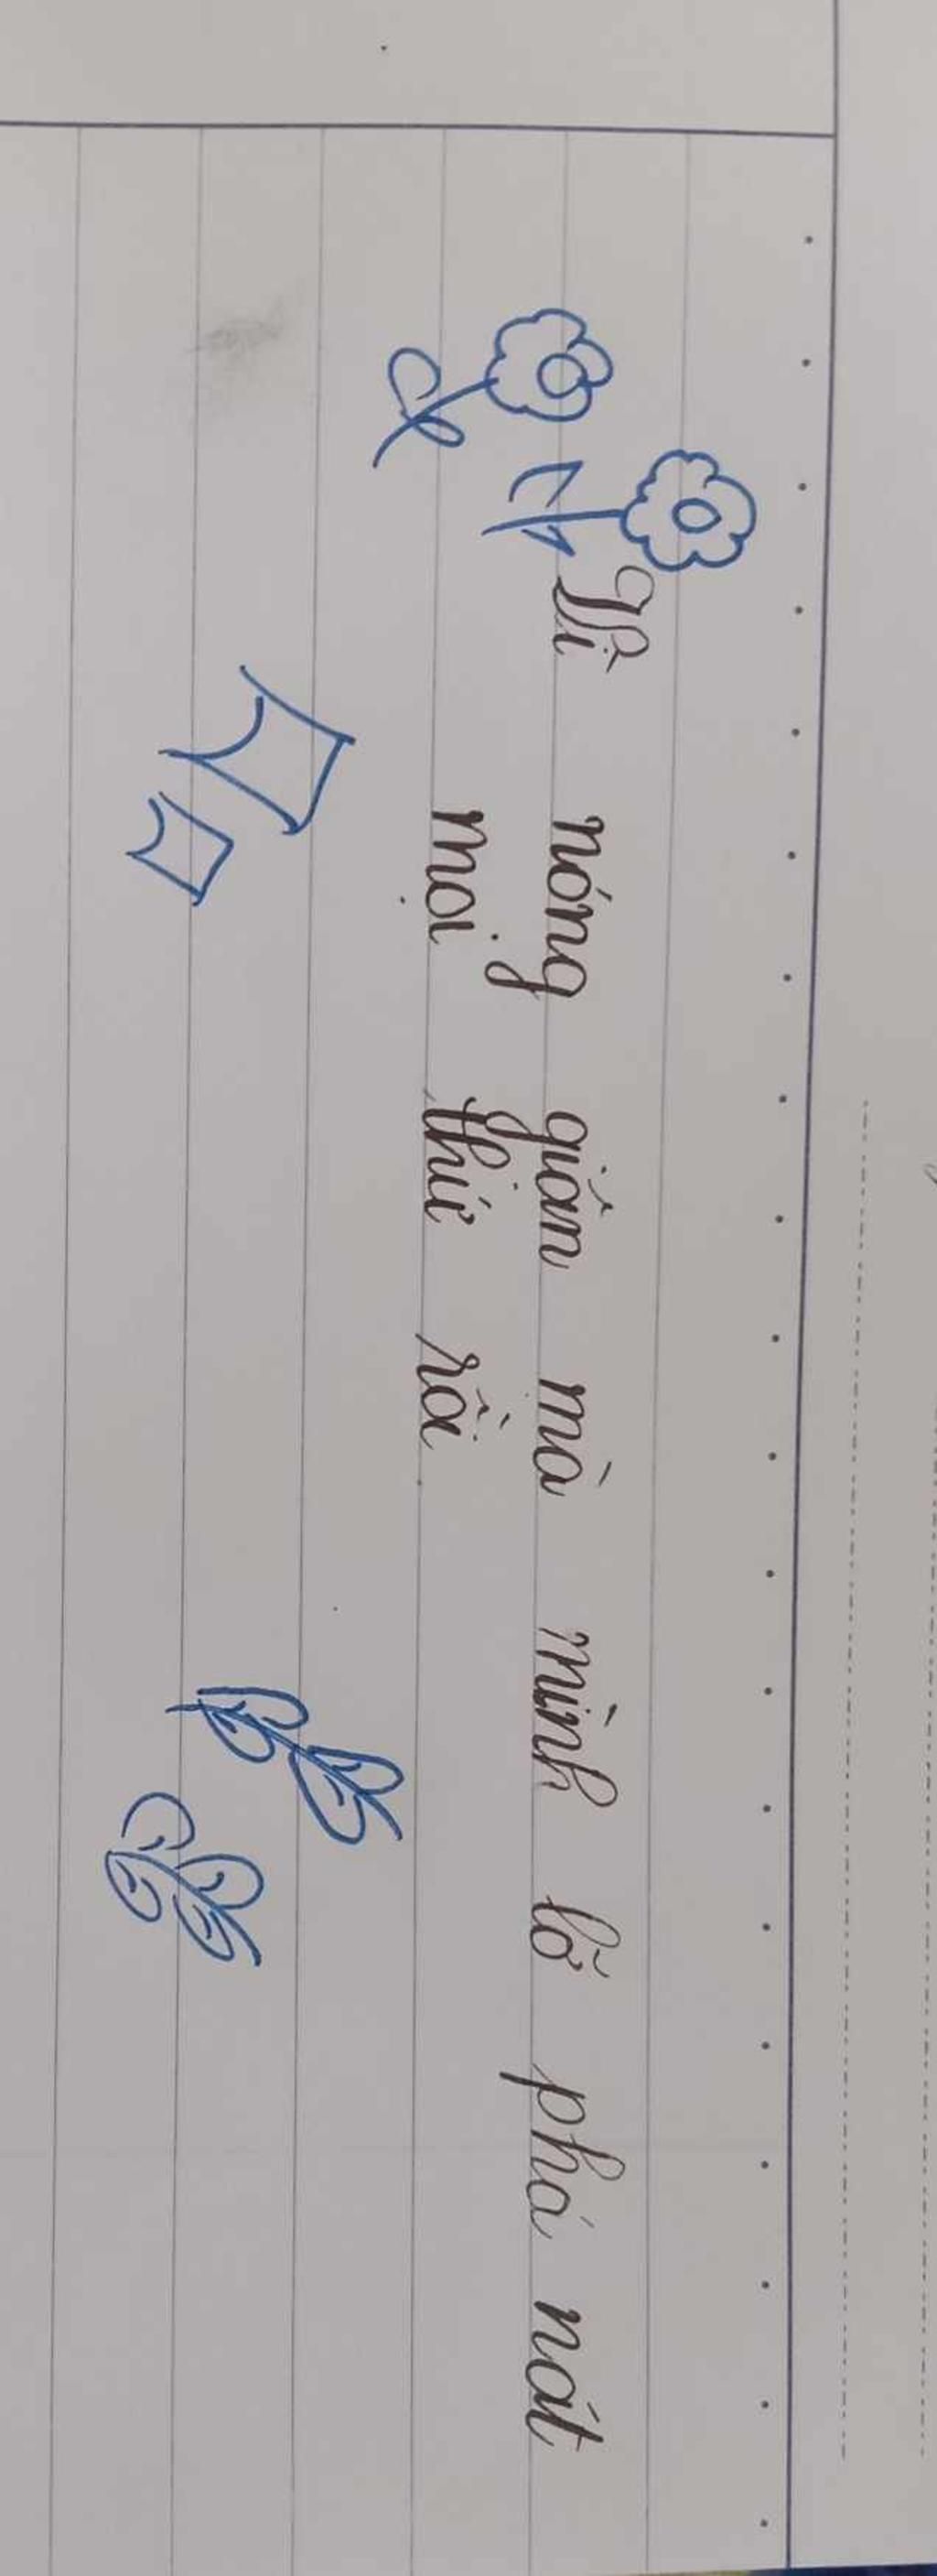 Vì nóng giận mà mình lỡ phá nát
mọi thứ rồi.